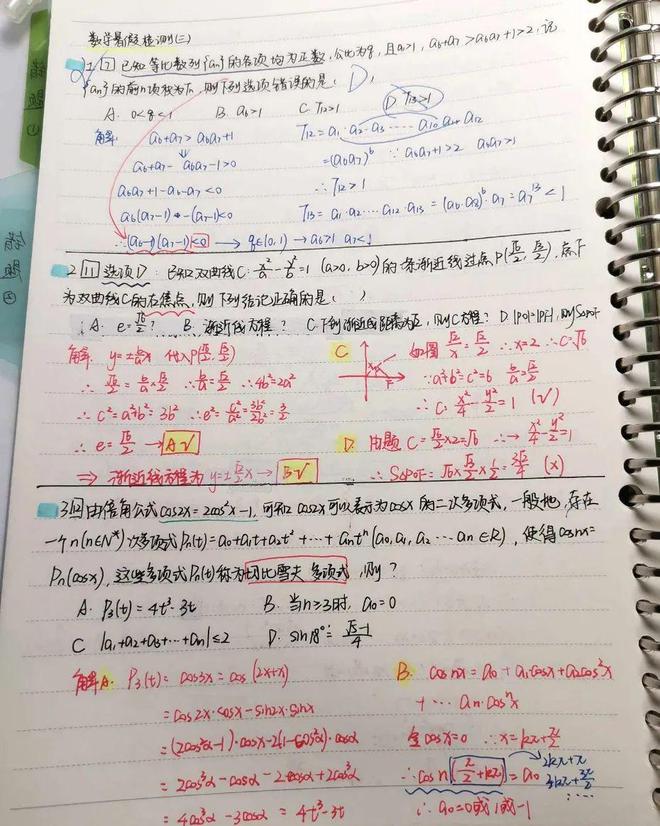 数学暑假检测(三)
1 [7] 已知等比数列{an}的各项均为正数,公比为q,且a1>1, a6+a7>a6a7+1>2,记
{an}的前n项积为Tn,则下列选项错误的是( D )
A. 0<q<1 B. a6>1 C. T12>1 D. T13>1
解: a6+a7>a6a7+1
a6+a7-a6a7-1>0
a6a7+1-a6-a7<0
a6(a7-1)-(a7-1)<0
∴(a6-1)(a7-1)<0 → q∈(0,1) → a6>1 a7<1
T12=a1·a2·a3·····a10 a11 a12
=(a6a7)^6 ∵a6a7+1>2 a6a7>1
∴T12>1
T13=a1·a2····a12·a13=(a6·a8)^6·a7=a7^13<1
2 [11] 选项D: 已知双曲线C: x²/a²-y²/b²=1 (a>0,b>0)的一条渐近线过点P(√6/2, √3/2),点F
为双曲线C的右焦点,则下列结论正确的是( )
A. e=√6/2? B. 渐近线方程? C. F到渐近线距离为√2,则C方程? D. |PO|=|PF|,则S△POF
解: y=±b/a x 代入P(√6/2, √3/2)
∴√3/2=b/a×√6/2 ∴b/a=√2/2 ∴4b²=2a²
∴c²=a²+b²=3b² ∴e²=c²/a²=3b²/2b²=3/2
∴e=√6/2 → A√
⇒ 渐近线方程为y=±√2/2 x → B√
C 如图 √2/x=√2/2 ∴x=2 ∴c=√6
∵a²+b²=c²=6 b/a=√2/2
∴C: x²/4-y²/2=1 (√)
D. 由题 c=√6/2×2=√6 ∴→ x²/4-y²/2=1
∴S△POF=√6×√3/2×1/2=3√2/4 (×)
3 回 由倍角公式cos2x=2cos²x-1,可知cos2x可以表示为cosx的二次多项式,一般地,存在
一个n(n∈N*)次多项式Pn(t)=a0+a1t+a2t²+…+antⁿ(a0,a1,a2…an∈R),使得cosnx=
Pn(cosx),这些多项式Pn(t)称为切比雪夫多项式,则?
A. P3(t)=4t³-3t B. 当n≥3时, a0=0
C |a1+a2+a3+…+an|≤2 D. sin18°=(√5-1)/4
解A. P3(t)=cos3x=cos(2x+x)
=cos2x·cosx-sin2x·sinx
=(2cos²α-1)·cosx-2(1-cos²α)·cosα
=2cos³α-cosα-2cosα+2cos³α
=4cos³α-3cosα=4t³-3t
B. cosnx=a0+a1cosx+a2cos²x
+…an·cosⁿx
令cosx=0 ∴x=kπ+π/2
∴cos n(π/2+kπ)=a0
2kπ+π
3kπ+3π/2
……
∴a0=0或1或-1